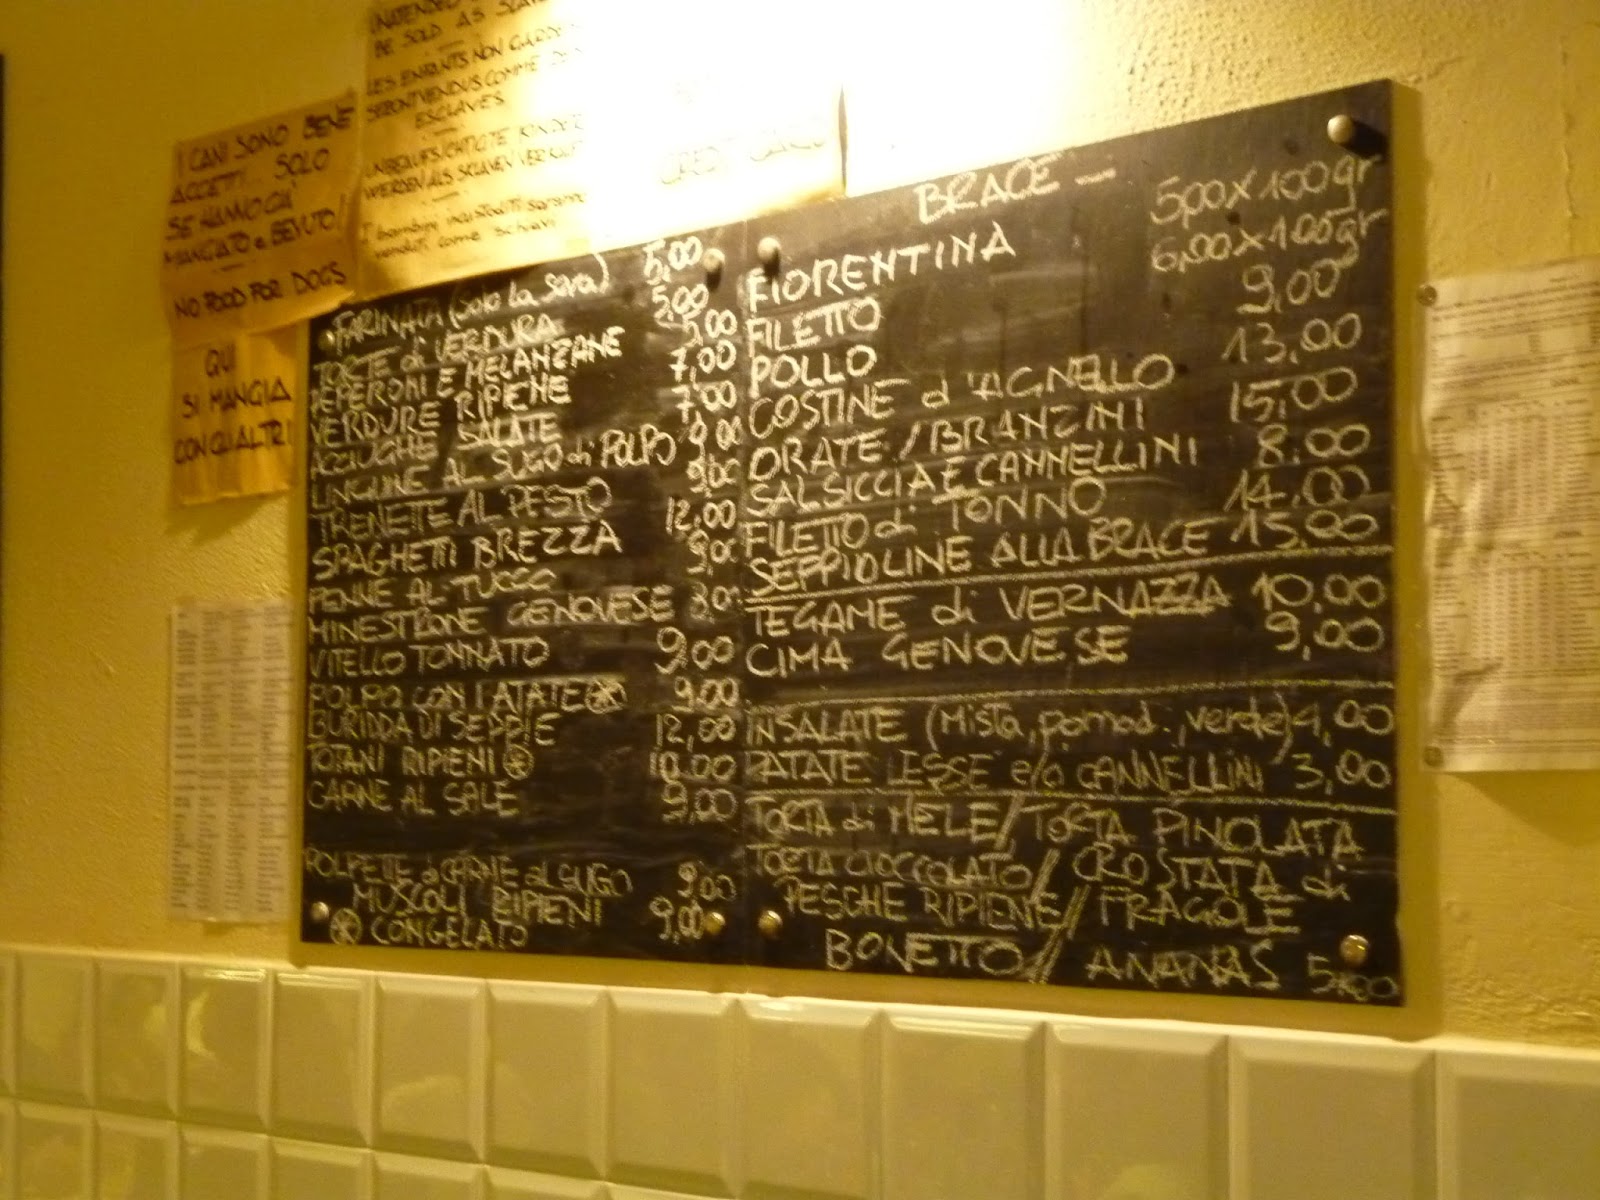 BE SOLD AS
LES ENFANTS NON GARDE
SERONT VENDUS COMME
ESCLAVES
UNBEAUFSICHTIGTE KINDER
WERDEN ALS SKLAVEN VERKAUFT
I bambini incustoditi saranno
venduti come schiavi
CREDIT CARD
I CANI SONO BENE
ACCETTI... SOLO
SE HANNO GIÀ
MANGIATO e BEVUTO!
NO FOOD FOR DOGS
QUI
SI MANGIA
CON GLI ALTRI
FARINATA (Solo la Sera) 5,00
TORTE di VERDURA 5,00
PEPERONI E MELANZANE 5,00
VERDURE RIPIENE 7,00
ACCIUGHE SALATE 7,00
LINGUINE AL SUGO di POLPO 9,00
TRENETTE AL PESTO 9,00
SPAGHETTI BREZZA 12,00
PENNE AL TUCCO 9,00
MINESTRONE GENOVESE 8,00
VITELLO TONNATO 9,00
POLPO CON PATATE 9,00
BURIDDA DI SEPPIE 12,00
TOTANI RIPIENI 10,00
CARNE AL SALE 9,00
POLPETTE di CARNE al SUGO 9,00
MUSCOLI RIPIENI 9,00
CONGELATO
BRACE -
FIORENTINA 5,00 x 100gr
FILETTO 6,00 x 100gr
POLLO 9,00
COSTINE d'AGNELLO 13,00
ORATE / BRANZINI 15,00
SALSICCIA E CANNELLINI 8,00
FILETTO di TONNO 14,00
SEPPIOLINE ALLA BRACE 15,00
TEGAME di VERNAZZA 10,00
CIMA GENOVESE 9,00
INSALATE (Mista, pomod., verde) 4,00
PATATE LESSE e/o CANNELLINI 3,00
TORTA di MELE / TORTA PINOLATA
TORTA CIOCCOLATO / CROSTATA di
PESCHE RIPIENE / FRAGOLE
BONETTO / ANANAS 5,00